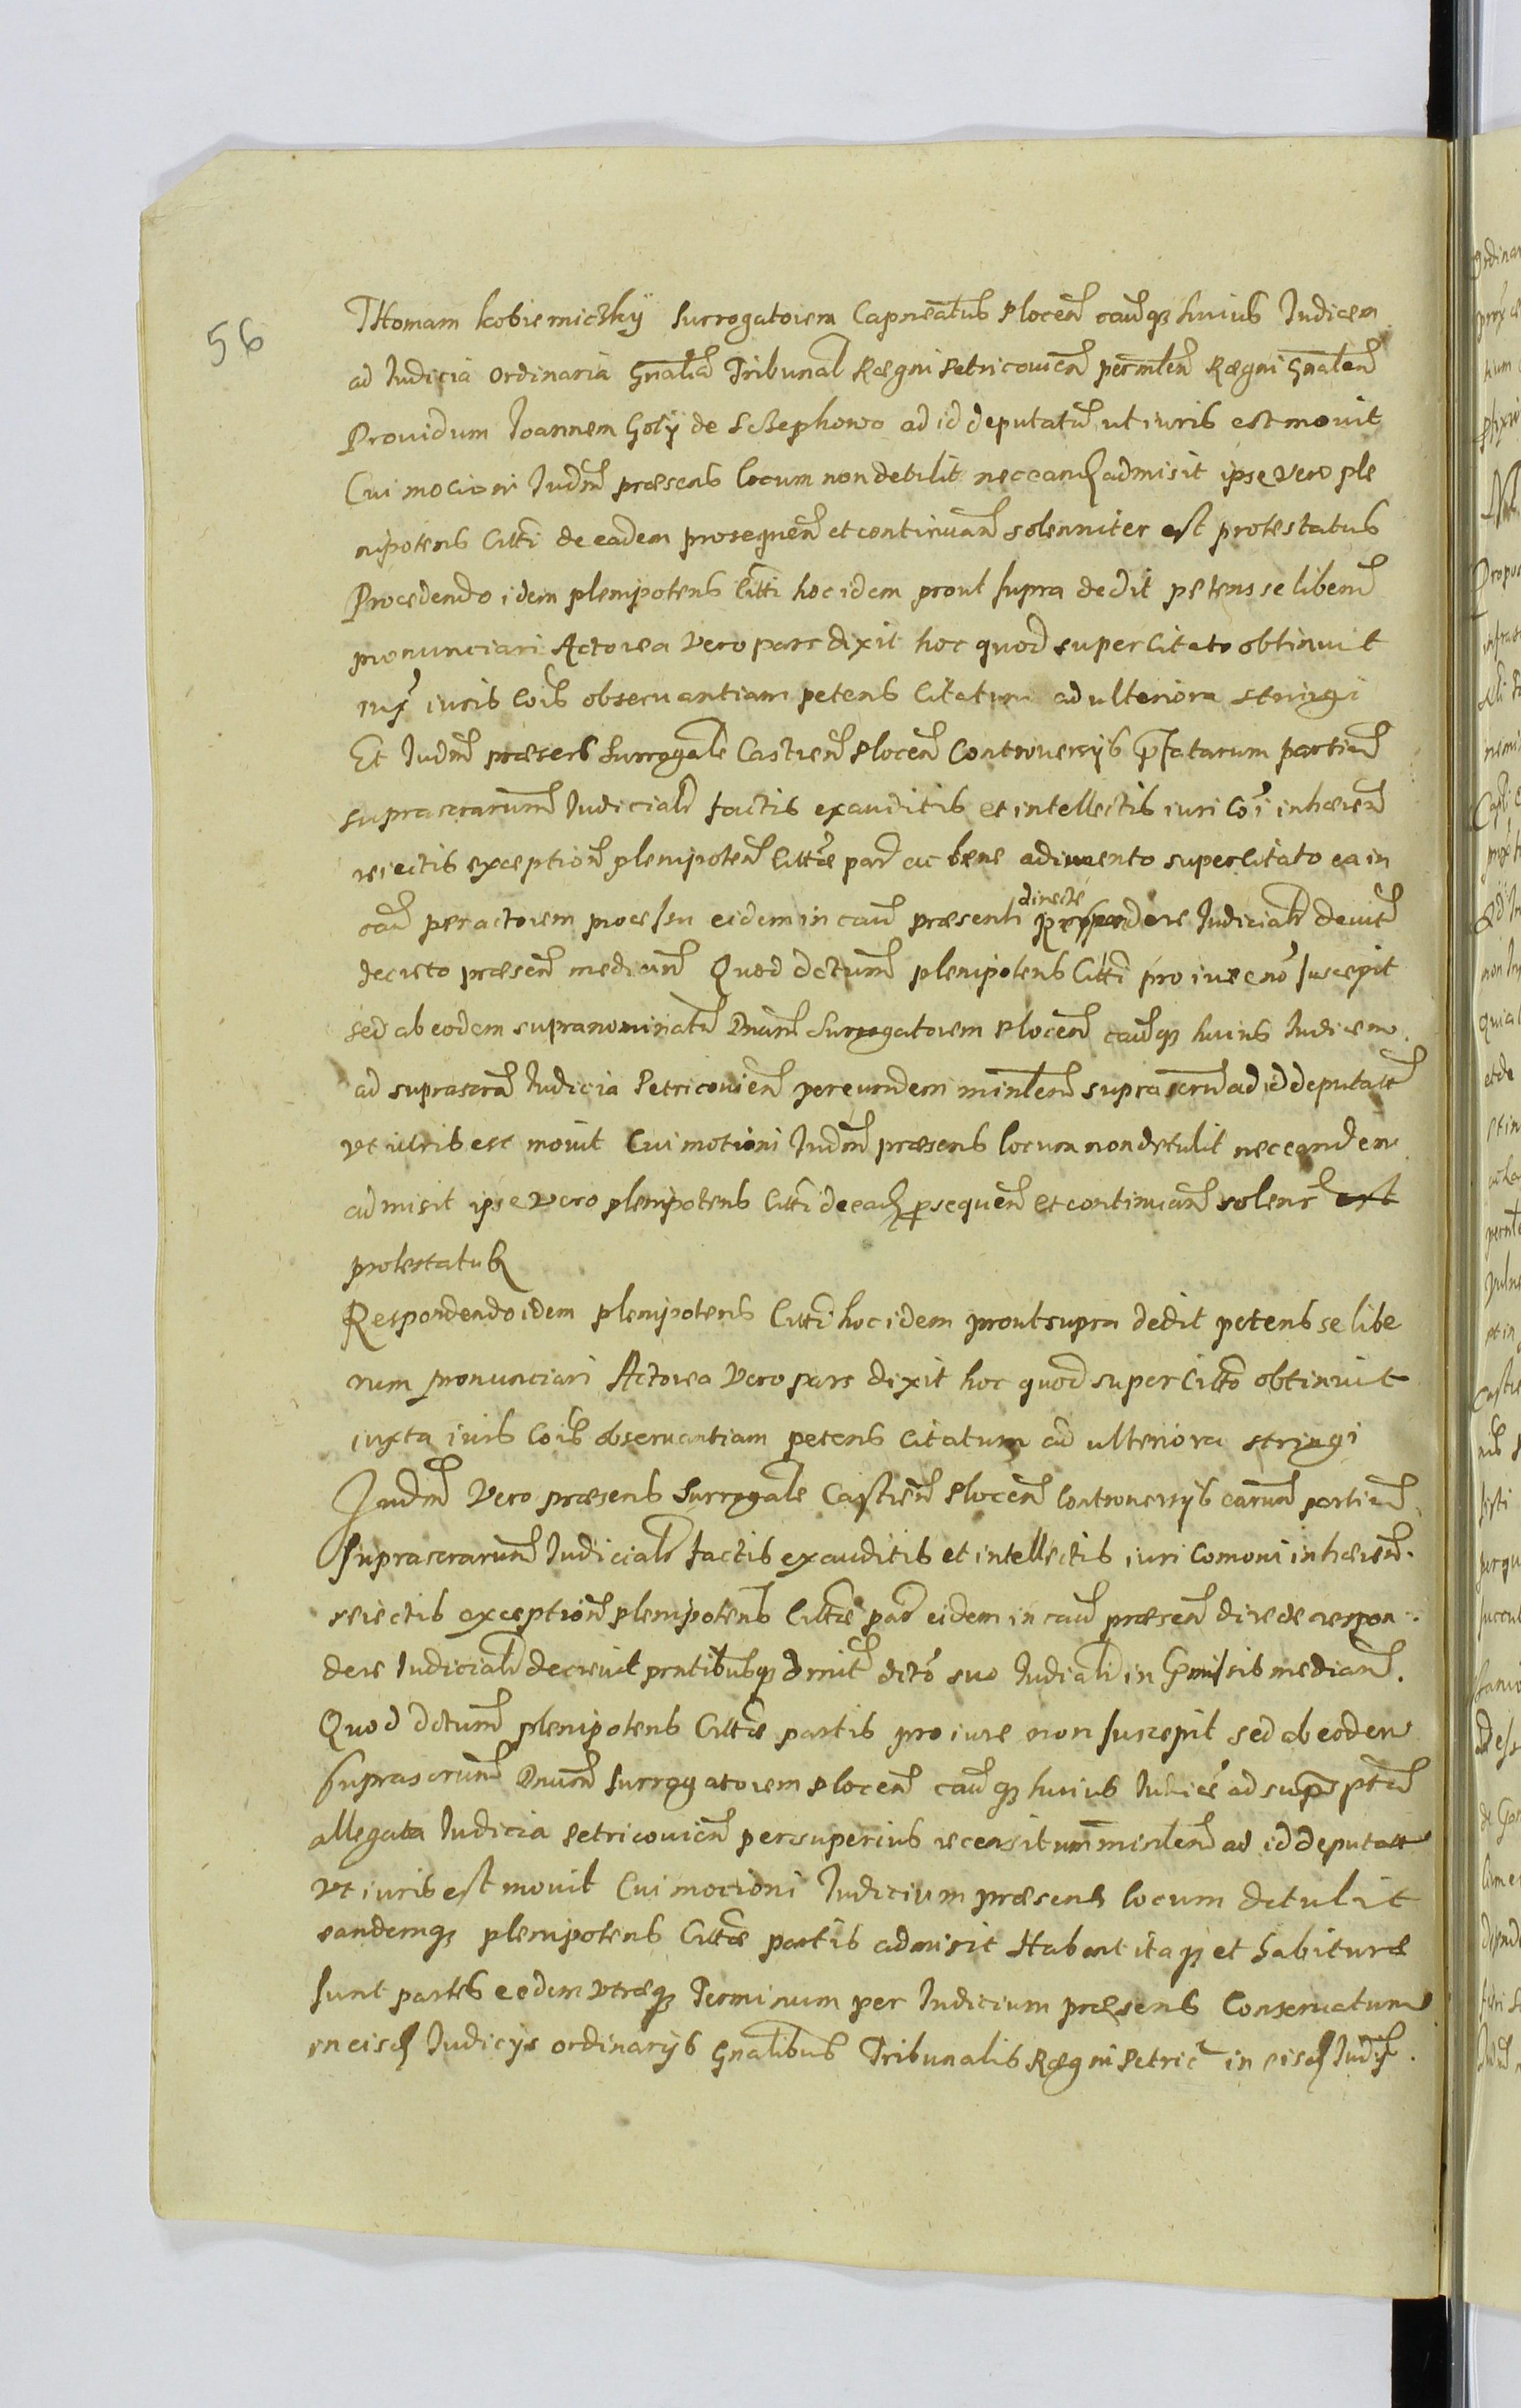 56
Thomam kobiernickÿ Surrogatorem Capneatus Plocen caūqȝ huius Iudicem
ad Iudicia ordinaria Gnalia Tribunal Regni Petricouien per mlen Regni Gnalem
Prouidum Ioannem Golÿ de ad id deputatū ut iuris est mouit
Cui mocioni Iudm præsens locum non detulit nec eand admisit ipse vero ple
nipotens Citti de eadem prosequen et continuan solenniter est protestatus
Procedendo idem plenipotens Citti hoc idem prout supra dedit petens se liberū
pronunciari Actorea vero pars dixit hoc quod super Citato obtinuit
iux iuris Cois obseruantiam petens Citatum ad ulteriora stringi
Et Iudm præsens Surrogale Castren Plocen Controuersijs pfatarum partiū
suprascrarum Iudiciali factis exauditis et intellectis iuri Coi inhæren
reiectis exception plenipoten Cittæ par ac bene adinuento super Citato ea in
caū per actorem processu eidem in cau præsenti directe respondere Iudiciali decreuit
decreto præsen median Quod dctum plenipotens Citti pro iure no suscepit
sed ab eodem supranominatū Dnum Surrogatorem Plocen cauqȝ huius Iudicem
ad suprascra Iudicia Petricouien per eundem minlem suprascrum ad id deputatū
vt iuris est mouit Cui motioni Iudm præsens locum non detulit nec eandem
admisit ipse vero plenipotens Citti de ead psequen et continuan solenr est
protestatus
Respondendo idem plenipotens Citti hoc idem prout supra dedit petens se libe
rum pronunciari Actorea vero pars dixit hoc quod super Citto obtinuit
iuxta iuris Cois obseruantiam petens Citatum ad ulteriora stringi
Iudm Vero præsens Surrogale Castren Plocen Controuersijs earum partium
suprascrarum Iudiciali factis exauditis et intellectis iuri Comoni inhæren.
reiectis exception plenipotens Cittæ par eidem in cau præsen directe respon
dere Iudiciali decreuit prntibusqȝ dcto suo Iudiciali in median.
Quod dctum plenipotens Cittæ partis pro iure non suscepit sed ab eodem
suprascrum Dnum Surrogatorem Plocen cauqȝ huius Iudice ad
allegata Iudicia Petricouien per superius recensitum minlem ad id deputatū
vt iuris est mouit Cui mocioni Iudicium præsens locum detulit
eandemqȝ plenipotens Cittæ partis admisit Habent itaqȝ et habituræ
sunt partes eedem vtræqȝ Terminum per Iudicium præsens Conseruatum
in eisd Iudicijs ordinarijs Gnalibus Tribunalis Regni Petric in eisd Iudijs.